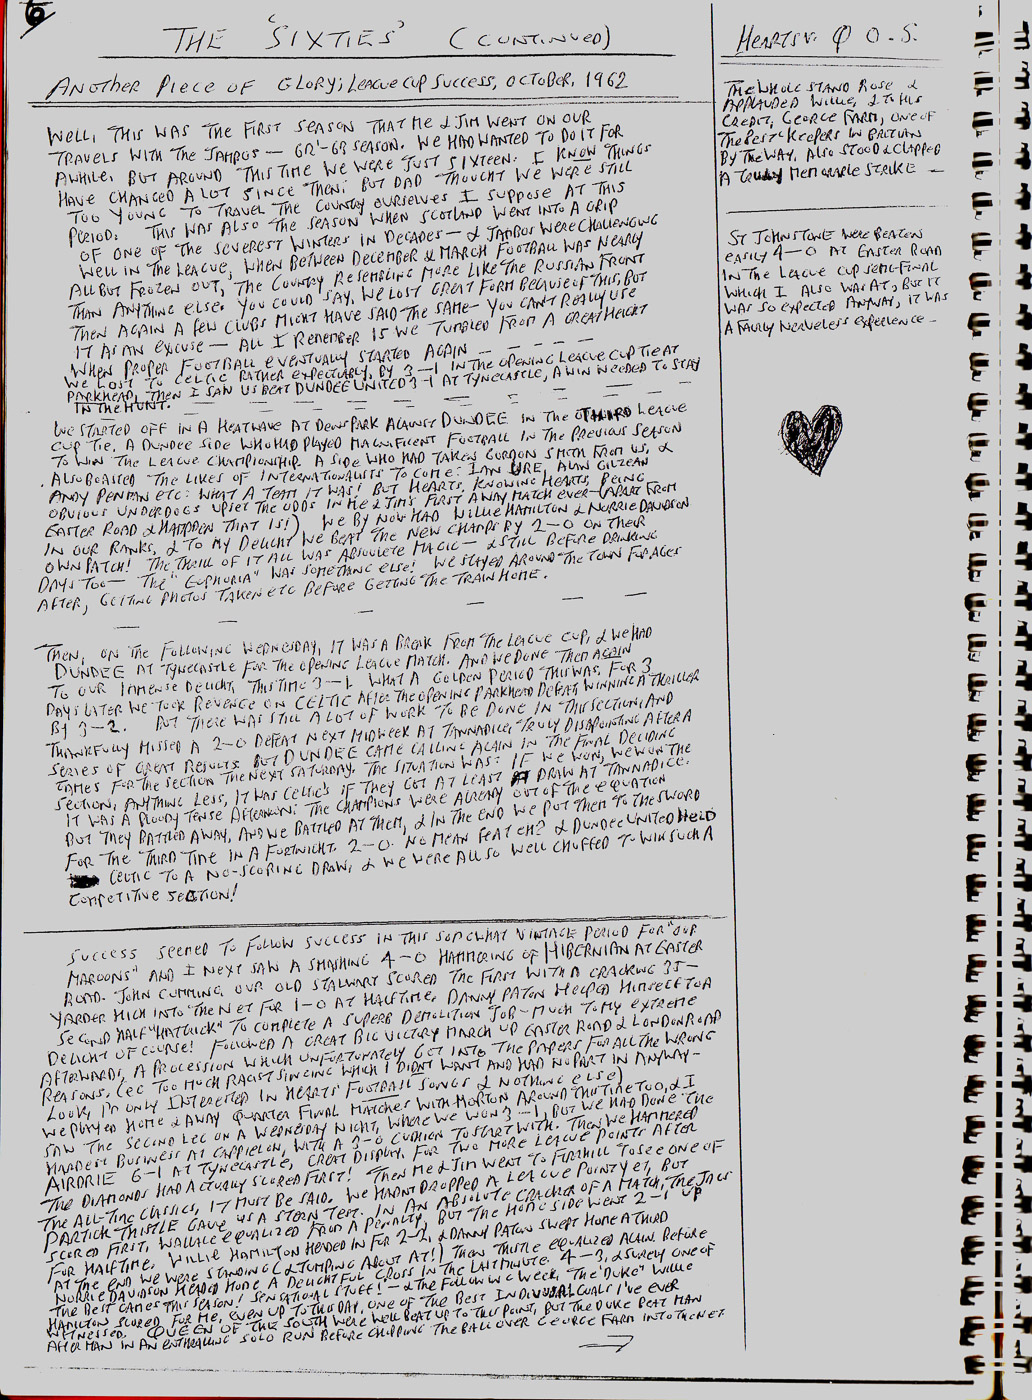 6
THE 'SIXTIES' (CONTINUED)
ANOTHER PIECE OF GLORY; LEAGUE CUP SUCCESS, OCTOBER, 1962
WELL, THIS WAS THE FIRST SEASON THAT ME & JIM WENT ON OUR
TRAVELS WITH THE JAMBOS — 62'-63 SEASON. WE HAD WANTED TO DO IT FOR
AWHILE, BUT AROUND THIS TIME WE WERE JUST SIXTEEN. I KNOW THINGS
HAVE CHANGED A LOT SINCE THEN; BUT DAD THOUGHT WE WERE STILL
TOO YOUNG TO TRAVEL THE COUNTRY OURSELVES I SUPPOSE AT THIS
PERIOD. THIS WAS ALSO THE SEASON WHEN SCOTLAND WENT INTO A GRIP
OF ONE OF THE SEVEREST WINTERS IN DECADES — & JAMBOS WERE CHALLENGING
WELL IN THE LEAGUE, WHEN BETWEEN DECEMBER & MARCH FOOTBALL WAS NEARLY
ALL BUT FROZEN OUT, THE COUNTRY RESEMBLING MORE LIKE THE RUSSIAN FRONT
THAN ANYTHING ELSE. YOU COULD SAY, WE LOST GREAT FORM BECAUSE OF THIS, BUT
THEN AGAIN A FEW CLUBS MIGHT HAVE SAID THE SAME — YOU CAN'T REALLY USE
IT AS AN EXCUSE — ALL I REMEMBER IS WE TUMBLED FROM A GREAT HEIGHT
WHEN PROPER FOOTBALL EVENTUALLY STARTED AGAIN — — — — —
WE LOST TO CELTIC RATHER EXPECTABLY, BY 3-1 IN THE OPENING LEAGUE CUP TIE AT
PARKHEAD, THEN I SAW US BEAT DUNDEE UNITED 3-1 AT TYNECASTLE, A WIN NEEDED TO STAY
IN THE HUNT.
WE STARTED OFF IN A HEATWAVE AT DENS PARK AGAINST DUNDEE IN THE THIRD LEAGUE
CUP TIE. A DUNDEE SIDE WHO HAD PLAYED MAGNIFICENT FOOTBALL IN THE PREVIOUS SEASON
TO WIN THE LEAGUE CHAMPIONSHIP. A SIDE WHO HAD TAKEN GORDON SMITH FROM US, &
ALSO BOASTED THE LIKES OF INTERNATIONALISTS TO COME: IAN URE, ALAN GILZEAN
ANDY PENMAN ETC: WHAT A TEAM IT WAS! BUT HEARTS, KNOWING HEARTS, BEING
OBVIOUS UNDERDOGS UPSET THE ODDS IN ME & JIM'S FIRST AWAY MATCH EVER — (APART FROM
EASTER ROAD & HAMPDEN THAT IS!) WE BY NOW HAD WILLIE HAMILTON & NORRIE DAVIDSON
IN OUR RANKS, & TO MY DELIGHT WE BEAT THE NEW CHAMPS BY 2-0 ON THEIR
OWN PATCH! THE THRILL OF IT ALL WAS ABSOLUTE MAGIC — & STILL BEFORE DRINKING
DAYS TOO — THE "EUPHORIA" WAS SOMETHING ELSE! WE STAYED AROUND THE TOWN FOR AGES
AFTER, GETTING PHOTOS TAKEN ETC BEFORE GETTING THE TRAIN HOME.
THEN, ON THE FOLLOWING WEDNESDAY, IT WAS A BREAK FROM THE LEAGUE CUP, & WE HAD
DUNDEE AT TYNECASTLE FOR THE OPENING LEAGUE MATCH. AND WE DONE THEM AGAIN
TO OUR IMMENSE DELIGHT, THIS TIME 3-1. WHAT A GOLDEN PERIOD THIS WAS, FOR 3
DAYS LATER WE TOOK REVENGE ON CELTIC AFTER THE OPENING PARKHEAD DEFEAT, WINNING A THRILLER
BY 3-2. BUT THERE WAS STILL A LOT OF WORK TO BE DONE IN THIS SECTION, AND
THANKFULLY MISSED A 2-0 DEFEAT NEXT MIDWEEK AT TANNADICE, TRULY DISAPPOINTING AFTER A
SERIES OF GREAT RESULTS. BUT DUNDEE CAME CALLING AGAIN IN THE FINAL DECIDING
GAMES FOR THE SECTION THE NEXT SATURDAY. THE SITUATION WAS: IF WE WON, WE WON THE
SECTION; ANYTHING LESS, IT WAS CELTIC'S IF THEY GOT AT LEAST A DRAW AT TANNADICE.
IT WAS A BLOODY TENSE AFTERNOON. THE CHAMPIONS WERE ALREADY OUT OF THE EQUATION
BUT THEY BATTLED AWAY, AND WE BATTLED AT THEM, & IN THE END WE PUT THEM TO THE SWORD
FOR THE THIRD TIME IN A FORTNIGHT. 2-0. NO MEAN FEAT EH? & DUNDEE UNITED HELD
CELTIC TO A NO-SCORING DRAW, & WE WERE ALL SO WELL CHUFFED TO WIN SUCH A
COMPETITIVE SECTION!
SUCCESS SEEMED TO FOLLOW SUCCESS IN THIS SOMEWHAT VINTAGE PERIOD FOR "OUR
MAROONS" AND I NEXT SAW A SMASHING 4-0 HAMMERING OF HIBERNIAN AT EASTER
ROAD. JOHN CUMMING, OUR OLD STALWART SCORED THE FIRST WITH A CRACKING 35-
YARDER HIGH INTO THE NET FOR 1-0 AT HALFTIME. DANNY PATON HELPED HIMSELF TO A
SECOND HALF "HATTRICK" TO COMPLETE A SUPERB DEMOLITION JOB — MUCH TO MY EXTREME
DELIGHT OF COURSE! FOLLOWED A GREAT BIG VICTORY MARCH UP EASTER ROAD & LONDON ROAD
AFTERWARDS, A PROCESSION WHICH UNFORTUNATELY GOT INTO THE PAPERS FOR ALL THE WRONG
REASONS, (EG TOO MUCH RACIST SINGING WHICH I DIDN'T WANT AND HAD NO PART IN ANYWAY —
LOOK, I'M ONLY INTERESTED IN HEARTS' FOOTBALL SONGS & NOTHING ELSE)
WE PLAYED HOME & AWAY QUARTER FINAL MATCHES WITH MORTON AROUND THIS TIME TOO, & I
SAW THE SECOND LEG ON A WEDNESDAY NIGHT, WHERE WE WON 3-1, BUT WE HAD DONE THE
HARDEST BUSINESS AT CAPPIELOW, WITH A 3-0 CUSHION TO START WITH. THEN WE HAMMERED
AIRDRIE 6-1 AT TYNECASTLE, GREAT DISPLAY, FOR TWO MORE LEAGUE POINTS AFTER
THE DIAMONDS HAD ACTUALLY SCORED FIRST! THEN ME & JIM WENT TO FIRHILL TO SEE ONE OF
THE ALL-TIME CLASSICS, IT MUST BE SAID. WE HADN'T DROPPED A LEAGUE POINT YET, BUT
PARTICK THISTLE GAVE US A STERN TEST. IN AN ABSOLUTE CRACKER OF A MATCH, THE JAGS
SCORED FIRST, WALLACE EQUALIZED FROM A PENALTY, BUT THE HOME SIDE WENT 2-1 UP
FOR HALFTIME. WILLIE HAMILTON HEADED IN FOR 2-2, & DANNY PATON SWEPT HOME A THIRD
AT THE END WE WERE STANDING (& JUMPING ABOUT AT!) THEN THISTLE EQUALIZED AGAIN. BEFORE
NORRIE DAVIDSON HEADED HOME A DELIGHTFUL CROSS IN THE LAST MINUTE. 4-3, & SURELY ONE OF
THE BEST GAMES THIS SEASON! SENSATIONAL STUFF! — & THE FOLLOWING WEEK, THE 'DUKE' WILLIE
HAMILTON SCORED FOR ME, EVEN UP TO THIS DAY, ONE OF THE BEST INDIVIDUAL GOALS I'VE EVER
WITNESSED. QUEEN OF THE SOUTH WERE WELL BEAT UP TO THIS POINT, BUT THE DUKE BEAT MAN
AFTER MAN IN AN ENTHRALLING SOLO RUN BEFORE CHIPPING THE BALL OVER GEORGE FARM INTO THE NET.
HEARTS V. Q O.S.
THE WHOLE STAND ROSE &
APPLAUDED WILLIE, & TO HIS
CREDIT, GEORGE FARM, ONE OF
THE BEST KEEPERS IN BRITIAN
BY THE WAY, ALSO STOOD & CLAPPED
A TRULY MEMORABLE STRIKE —
ST JOHNSTONE WERE BEATEN
EASILY 4-0 AT EASTER ROAD
IN THE LEAGUE CUP SEMI-FINAL
WHICH I ALSO WAS AT, BUT IT
WAS SO EXPECTED ANYWAY, IT WAS
A FAIRLY NERVELESS EXPERIENCE —